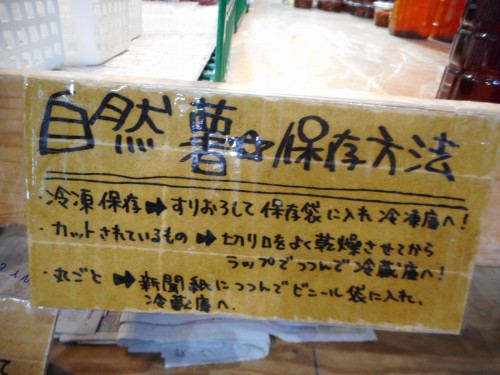 自然薯☆保存方法
・冷凍保存➡すりおろして保存袋に入れ冷凍庫へ!
・カットされているもの➡切り口をよく乾燥させてから
ラップでつつんで冷蔵庫へ!
・丸ごと➡新聞紙につつんでビニール袋に入れ、
冷蔵庫へ.